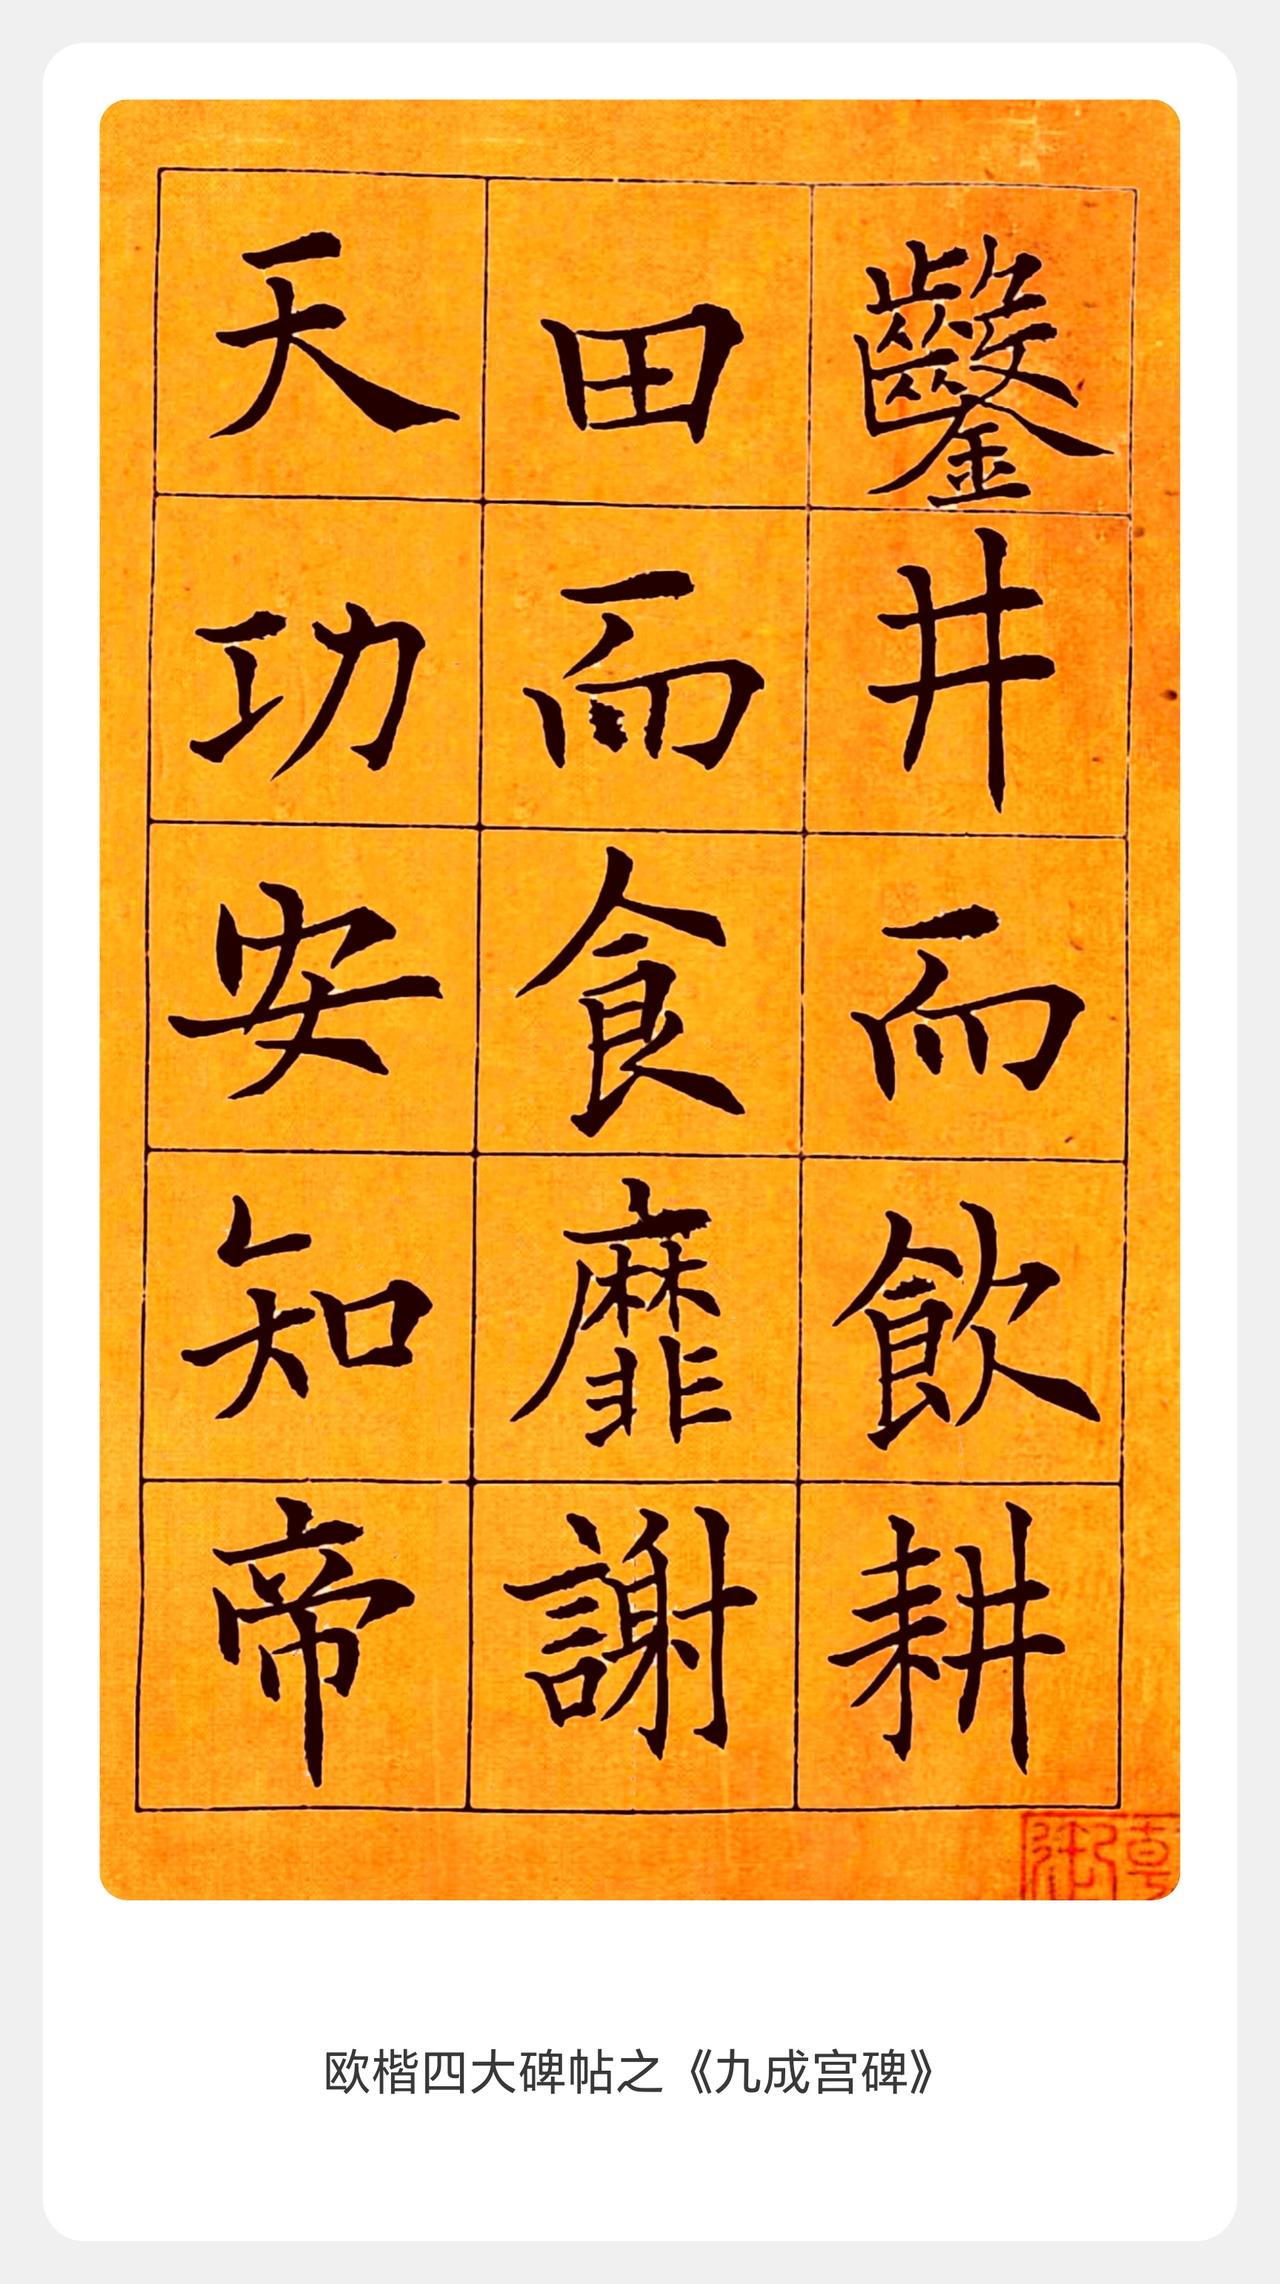 鑿井而飲耕
田而食靡謝
天功安知帝
欧楷四大碑帖之《九成宫碑》